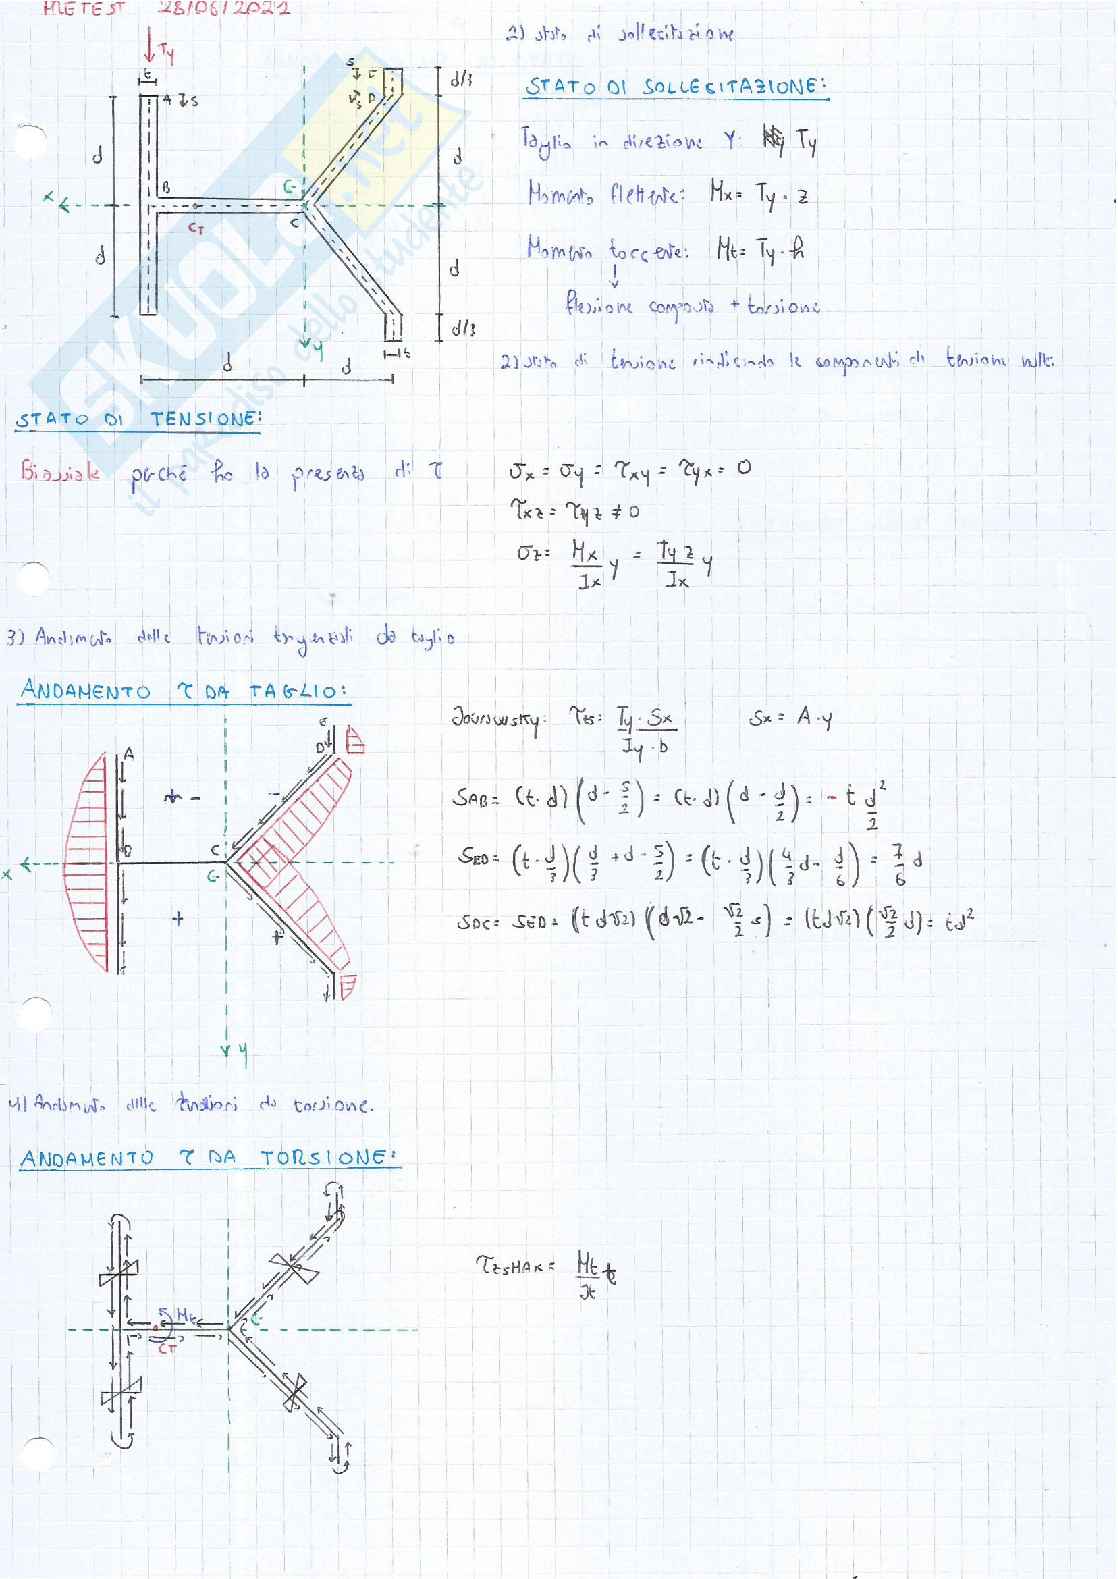 PRETEST 28/06/2022
2) stato di sollecitazione
STATO DI SOLLECITAZIONE:
Taglio in direzione Y: Ty
Momento flettente: Mx = Ty · z
Momento torcente: Mt = Ty · h
flessione composta + torsione
Ty
t
A ↓s
B
CT
G
C
x
y
s
E
D
d
d
d
d
d/3
d
d
d/3
t
2) stato di tensione indicando le componenti di tensione nulle.
STATO DI TENSIONE:
Biassiale perché ho la presenza di τ
σx = σy = τxy = τyx = 0
τxz = τyz ≠ 0
σz = Mx/Ix y = Ty z/Ix y
3) Andamento delle tensioni tangenziali da taglio
ANDAMENTO τ DA TAGLIO:
Jourawsky: τzs = Ty · Sx / Iy · b Sx = A · y
SAB = (t · d)(d - s/2) = (t · d)(d - d/2) = - t d²/2
SED = (t · d/3)(d/3 + d - s/2) = (t · d/3)(4/3 d - d/6) = 7/6 d
SDC = SED = (t d√2)(d√2 - √2/2 s) = (t d√2)(√2/2 d) = t d²
A
B
C
G
D
E
x
y
+ -
-
+
+
4) Andamento delle tensioni da torsione.
ANDAMENTO τ DA TORSIONE:
τzsMAX = Mt/Jt t
Mt
CT
C
G
SKUOLA.net
il paradiso dello studente